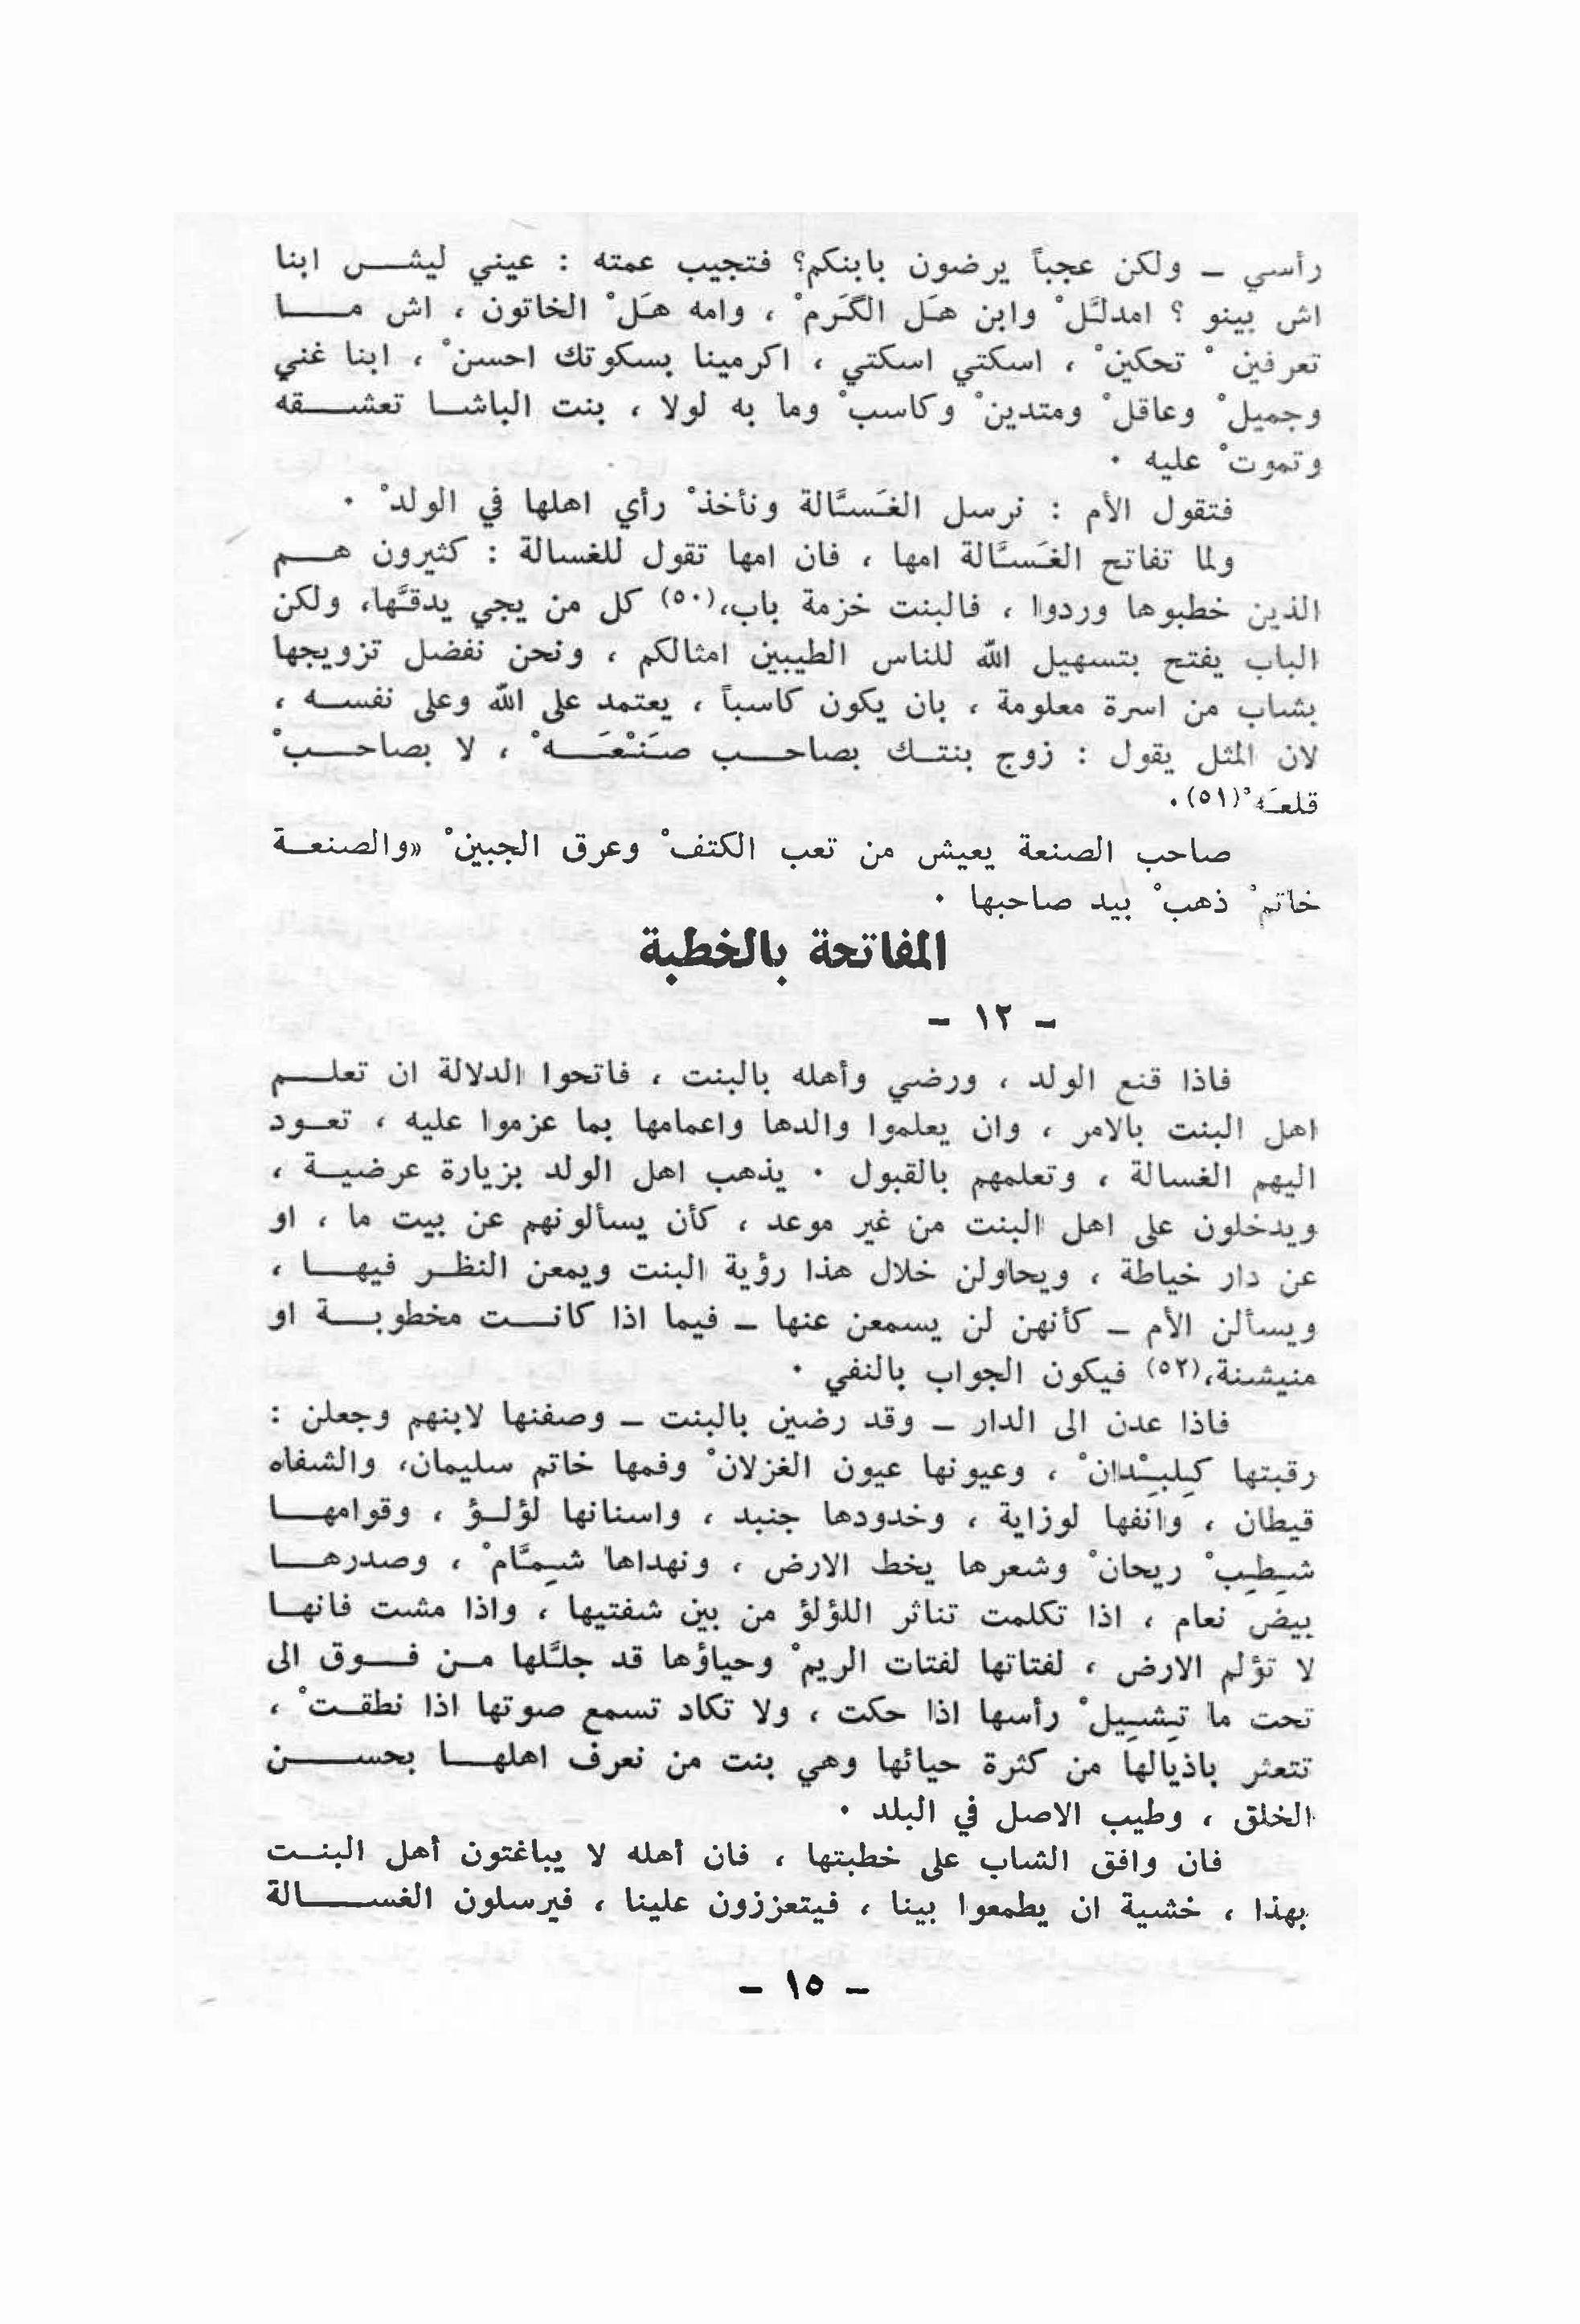 رأسي ــ ولكن عجباً يرضون بابنكم؟ فتجيب عمته : عيني ليش ابنا
اش بينو ؟ امدلَّلْ وابن هَل الگَرمْ ، وامه هَلْ الخاتون ، اش ما
تعرفين ْ تحكينْ ، اسكتي اسكتي ، اكرمينا بسكوتك احسنْ ، ابنا غني
وجميلْ وعاقلْ ومتدينْ وكاسبْ وما به لولا ، بنت الباشا تعشقه
وتموتْ عليه ٠
فتقول الأم : نرسل الغَسَّالة ونأخذْ رأي اهلها في الولدْ ٠
ولما تفاتح الغَسَّالة امها ، فان امها تقول للغسالة : كثيرون هم
الذين خطبوها وردوا ، فالبنت خزمة باب،(٥٠) كل من يجي يدقَّها، ولكن
الباب يفتح بتسهيل الله للناس الطيبين امثالكم ، ونحن نفضل تزويجها
بشاب من اسرة معلومة ، بان يكون كاسباً ، يعتمد على الله وعلى نفسه ،
لان المثل يقول : زوج بنتك بصاحب صَنْعَهْ ، لا بصاحبْ
قلعَهْ(٥١)٠
صاحب الصنعة يعيش من تعب الكتفْ وعرق الجبينْ «والصنعة
خاتمْ ذهبْ بيد صاحبها ٠
المفاتحة بالخطبة
- ١٢ -
فاذا قنع الولد ، ورضي وأهله بالبنت ، فاتحوا الدلالة ان تعلم
اهل البنت بالامر ، وان يعلموا والدها واعمامها بما عزموا عليه ، تعود
اليهم الغسالة ، وتعلمهم بالقبول ٠ يذهب اهل الولد بزيارة عرضية ،
ويدخلون على اهل البنت من غير موعد ، كأن يسألونهم عن بيت ما ، او
عن دار خياطة ، ويحاولن خلال هذا رؤية البنت ويمعن النظر فيها ،
ويسألن الأم ــ كأنهن لن يسمعن عنها ــ فيما اذا كانت مخطوبة او
منيشنة،(٥٢) فيكون الجواب بالنفي ٠
فاذا عدن الى الدار ــ وقد رضين بالبنت ــ وصفنها لابنهم وجعلن :
رقبتها كِلبِدْانْ ، وعيونها عيون الغزلانْ وفمها خاتم سليمان، والشفاه
قيطان ، وانفها لوزاية ، وخدودها جنبد ، واسنانها لؤلؤ ، وقوامها
شِطِبْ ريحانْ وشعرها يخط الارض ، ونهداها شِمَّامْ ، وصدرها
بيض نعام ، اذا تكلمت تناثر اللؤلؤ من بين شفتيها ، واذا مشت فانها
لا تؤلم الارض ، لفتاتها لفتات الريمْ وحياؤها قد جلَّلها من فوق الى
تحت ما تِشِيلْ رأسها اذا حكت ، ولا تكاد تسمع صوتها اذا نطقتْ ،
تتعثر باذيالها من كثرة حيائها وهي بنت من نعرف اهلها بحسن
الخلق ، وطيب الاصل في البلد ٠
فان وافق الشاب على خطبتها ، فان أهله لا يباغتون أهل البنت
بهذا ، خشية ان يطمعوا بينا ، فيتعززون علينا ، فيرسلون الغسالة
- ١٥ -